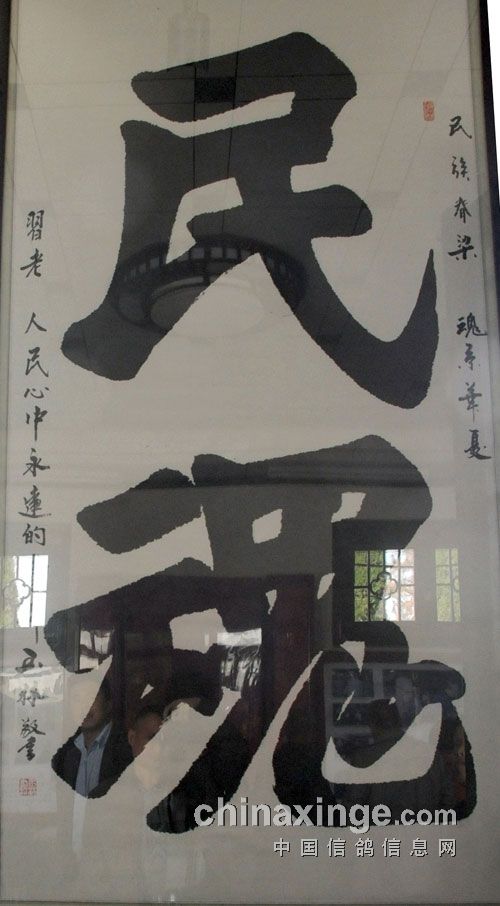 民族脊梁 魂系華夏
民魂
習老 人民心中永遠的——玉林敬書
chinaxinge.com
中国信鸽信息网